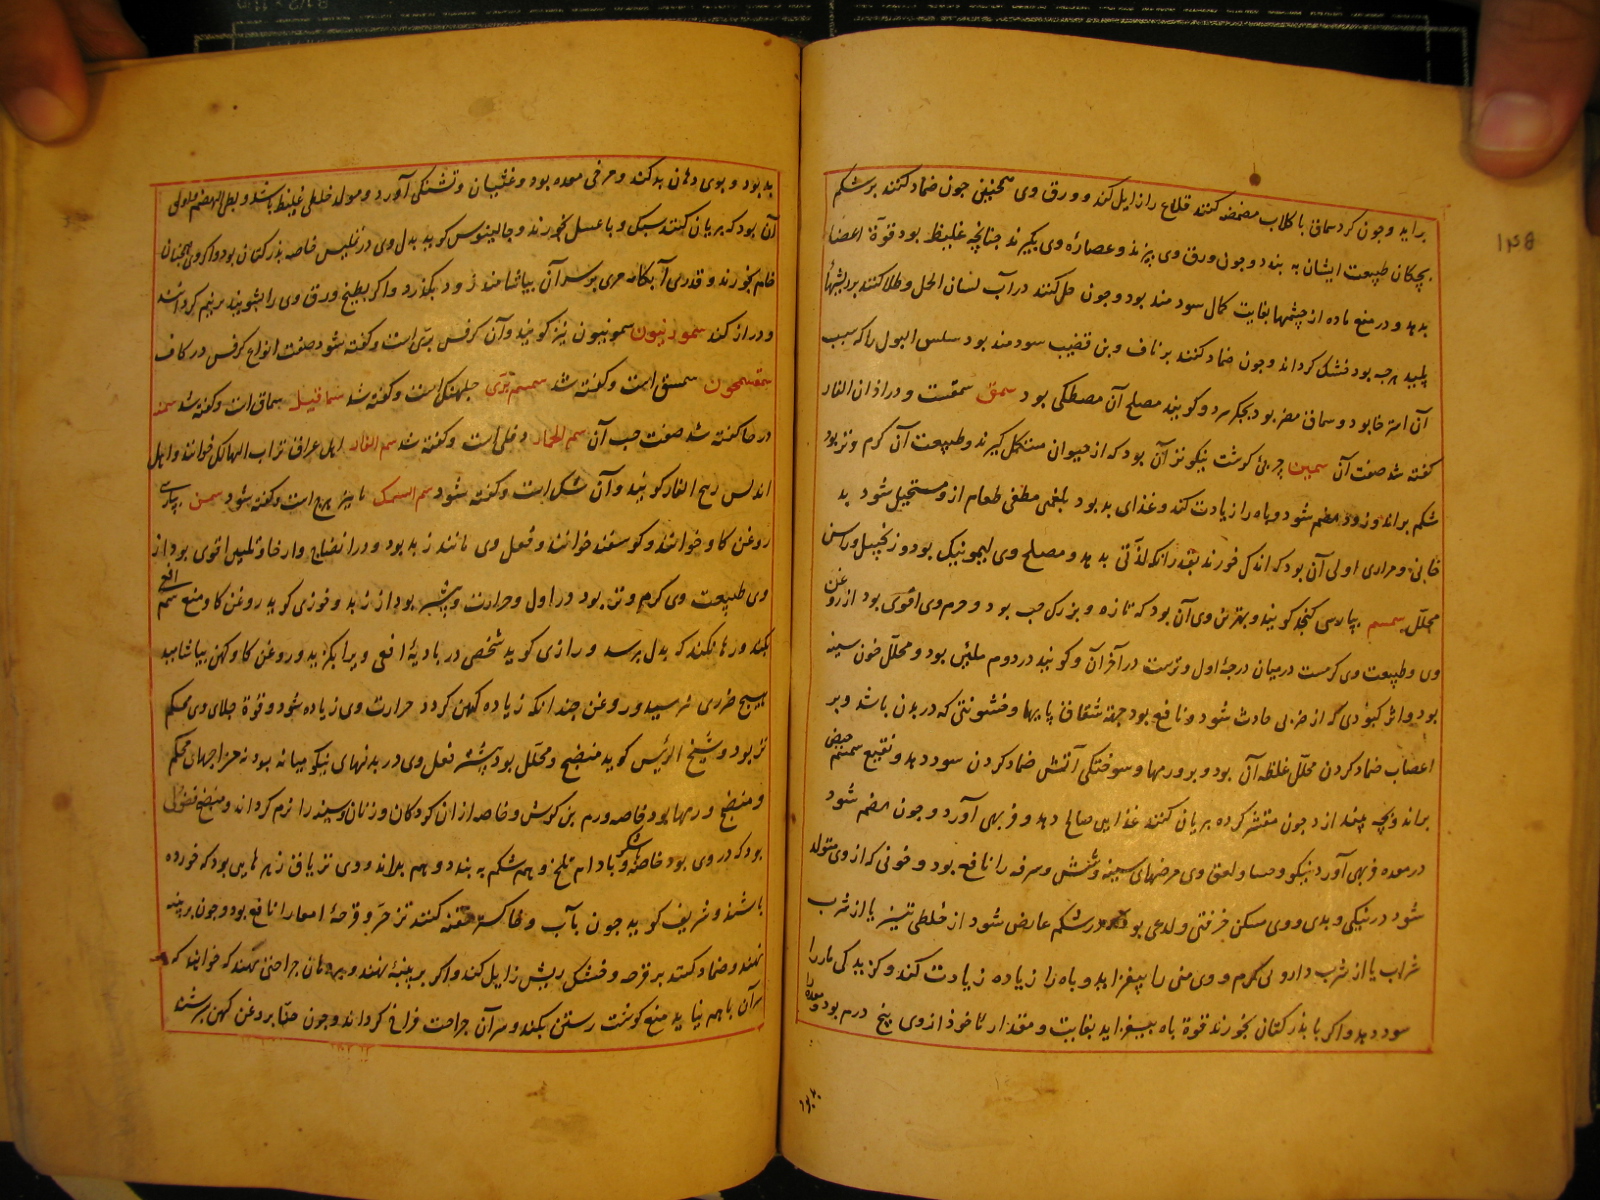 براید و چون گرد سماق با گلاب مضمضه کنند قلاع را زایل کند و ورق وی همچنین چون ضماد کنند بر شکم
بچکان طبیعت ایشان به بندد و چون ورق وی بپزند و عصارهٔ وی بگیرند چنانچه غلیظ بود قوة اعضا
بدهد و در منع ماده از چشمها بغایت کمال سودمند بود و چون حل کنند در آب لسان الحمل و طلا کنند بر ریشهاء
پلید هرچه بود خشک گرداند و چون ضماد کنند بر ناف و بن قضیب سودمند بود سلس البول را که سبب
آن استرخا بود و سماق مضر بود بجگر سرد و گویند مصلح آن مصطکی بود سمق سمقست و در اذان الفار
گفته شد صفت آن سمین چربی گوشت نیکوترین آن بود که از حیوان مستکمل گیرند و طبیعت آن گرم و تر بود
شکم براند و زود هضم شود و باه را زیادت کند و غذای بد بود بلغمی مطفی طعام از و مستحیل شود به
خانی و مراری اولی آن بود که اندک خورند بقدر آنکه لذتی بدهد و مصلح وی لیمو نیک بود و زنجبیل و
محلل سمسم بپارسی کنجد گویند و بهترین وی آن بود که تازه و بزرگ حب بود و جرم وی اقوی بود از روغن
وی و طبیعت وی گرمست در میان درجهٔ اول و ترست در آخر آن و گویند در دوم ملین بود و محلل خون سینه
بود و اثر کبودی که از ضربی حادث شود و نافع بود جهة شقاق پایها و خشونتی که در بدن باشد و بر
اعصاب ضماد کردن محلل غلظهٔ آن بود و بر ورمها و سوختگی آتش ضماد کردن سود دهد و نقیع سمسم حیض
براند و بچه بیندازد و چون مقشر کرده بریان کنند غذایی صالح دهد و فربهی آورد و چون هضم شود
در معده فربهی آورد نیکو و حسا و لعق وی مرضهای سینه و شش و سرفه را نافع بود و خونی که از وی متولد
شود در نیکی و بدی و وی مسکن حرقتی و لذعی بود در شکم عارض شود از خلطی تیز یا از شرب
شراب یا از شرب داروی گرم و وی منی را بیفزاید و باه را زیاده زیادت کند و گزیدگی مار را
سود دهد و اگر با بذر کتان بخورند قوة باه بیفزاید بغایت و مقدار مأخوذ از وی پنج درم بود و معده را
بد بود
بد بود و بوی دهان بد کند و مرخی معده بود و غثیان و تشنگی آورد و مولد خلطی غلیظ باشد و بطی الهضم
آن بود که بریان کنند سبک و با عسل بخورند و جالینوس گوید بدل وی در تحلیل خاصه بذر کتان بود و اگر وی همچنان
خام بخورند و قدری آبکامه مری بر سر آن بیاشامند زود بگذرد و اگر بطبیخ ورق وی را بشویند نرم گرداند
و دراز کند سمورنیون سمونیون نیز گویند و آن کرفس بری است و گفته شود صفت انواع کرفس در کاف
سمسق است و گفته شد سمسم بری جلبهنگ است و گفته شد سماقیل سماق است و گفته شد سمنه
در حا گفته شد صفت حب آن سم الحمار دفلی است و گفته شد سم الفار اهل عراق تراب الهالک خوانند و اهل
اندلس رهج الفار گویند و آن شک است و گفته شود سم السمک ماهیزهرج است و گفته شود سمن بپارسی
روغن گاو خوانند و گوسفند خوانند و فعل وی مانند زبد بود و در انضاج و ارخا و تلیین اقوی بود از
وی طبیعت وی گرم و تر بود در اول و حرارت وی بیشتر بود از زبد و خوزی گوید روغن گاو منع سم افعی
بکند و رها نکند که بدل برسد و رازی گوید شخصی در بادیهٔ افعی ویرا بگزید و روغن گاو کهن بیاشامید
هیچ ضرری نرسید و روغن چندانکه زیاده کهن گردد حرارت وی زیاده شود و قوة جلای وی محکم
تر بود و شیخ الرئیس گوید منضج و محلل بود بیشتر فعل وی در بدنهای نیکو میانه بود نه مزاجهای محکم
و منضج ورمها بود خاصه ورم بن گوش و خاصه از ان کودکان و زنان و سینه را نرم گرداند و منضج فضولی
بود که در وی بود خاصه شکر و بادام تلخ و هم شکم به بندد و هم براند و وی تریاق زهرهایی بود که خورده
باشند و شریف گوید چون بآب و خاکستر حقنه کنند تزحر و قرحهٔ امعا را نافع بود و چون بر پنبه
نهند و ضماد کنند بر قرحه و خشک ریش زایل کند و اگر بر پنبهٔ نهند و بر دهان جراحتی نهند که خواهند که
سر آن باهم نیاید منع گوشت رستن بکند و سر آن جراحت فراخ گرداند و چون حنا بروغن کهن بسرشند